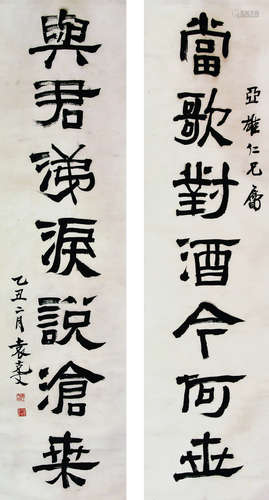 亞雄仁兄屬
當歌對酒今何世
與君涕淚說滄桒
乙丑二月袁克文